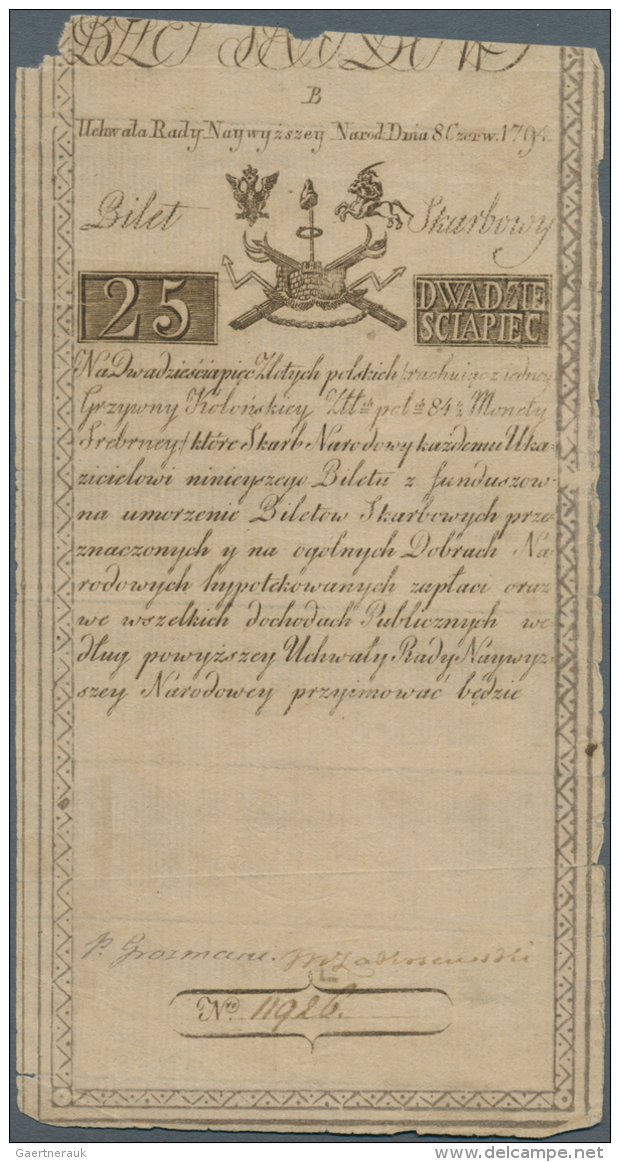 B
Uchwała Rady Naywyższey Narod: Dnia 8 Czerw: 1794
Bilet Skarbowy
25 DWADZIE
SCIAPIĘC
Na Dwadzieściapięc Złotych polskich /rachuiąc z iedney
Grzywny Kolońskiey Złł: pol: 84 Monety
Srebrney/ które Skarb Narodowy każdemu Uka-
zicielowi ninieyszego Biletu z funduszow
na umorzenie Biletów Skarbowych prze-
znaczonych y na ogólnych Dobrach Na-
rodowych hypotekowanych zapłaci oraz
we wszelkich dochodach Publicznych we-
dług powyższey Uchwały Rady Naywyż-
szey Narodowey przyimować będzie
P. Grozmani.
Nro 11926.
Gaertnerauk DELCAMPE.NET